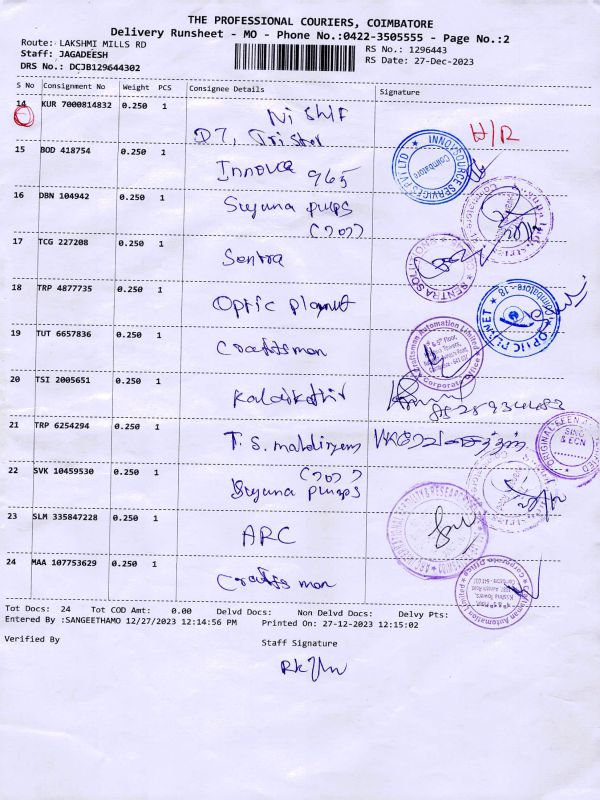 THE PROFESSIONAL COURIERS, COIMBATORE
Delivery Runsheet - MO - Phone No.:0422-3505555 - Page No.:2
Route: LAKSHMI MILLS RD
RS No.: 1296443
Staff: JAGADEESH
RS Date: 27-Dec-2023
DRS No.: DCJB129644302
S No Consignment No Weight PCS Consignee Details Signature
14 KUR 7000814832 0.250 1
H/R
15 BOD 418754 0.250 1 Innova 965
INNOVSOURCE SERVICES PVT LTD Coimbatore
16 DBN 104942 0.250 1 Suguna pumps
17 TCG 227208 0.250 1 Sentra
18 TRP 4877735 0.250 1 Optic planet
OPTIC PLANET Coimbatore-18
19 TUT 6657836 0.250 1 Craftsman
Craftsman Automation Limited Corporate Office
20 TSI 2005651 0.250 1 Kalaikathir
21 TRP 6254294 0.250 1 T.S.
22 SVK 10459530 0.250 1 Suguna pumps
23 SLM 335847228 0.250 1 ARC
24 MAA 107753629 0.250 1 Craftsman
Craftsman Automation Limited Corporate Office
Tot Docs: 24 Tot COD Amt: 0.00 Delvd Docs: Non Delvd Docs: Delvy Pts:
Entered By :SANGEETHAMO 12/27/2023 12:14:56 PM Printed On: 27-12-2023 12:15:02
Verified By
Staff Signature